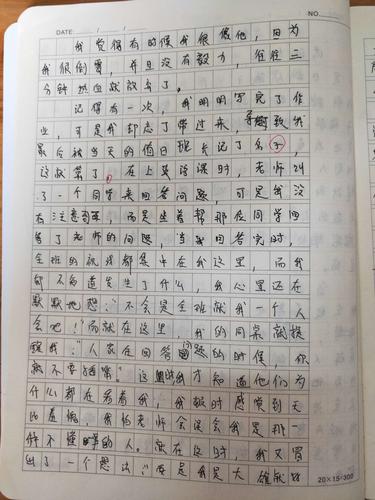 NO.
DATE
我觉得有时候我很像他,因为
我很倒霉,并且没有毅力,往往三
分钟热血就放弃了。
记得有一次,我明明写完了作
业,可是我却忘了带过来,导致我
最后被当天的值日班长记了名字,
这就算了,在上英语课时,老师叫
了一个同学来回答问题,可是我没
有注意听,而是坐着帮那位同学回
答了老师的问题,当我回答完时,
全班的视线都集中在我这里,而我
却不知道发生了什么,我心里还在
默默地想:"不会是全班就我一个人
会吧!"而就在这里,我的同桌就提
醒我:"人家在回答问题的时候,你
就不要插嘴。"这时我才知道他们为
什么都在看着我,我顿时感觉到无
比羞愧,我怕老师会误会我是那一
种不懂的人。就在这时,我又冒
出了一个想法:"要是我是大雄就好
20×15=300